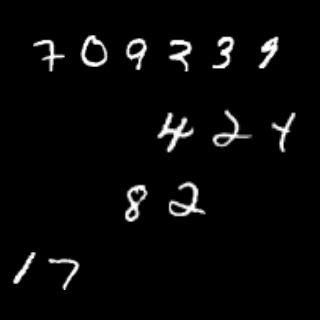 709239
424
82
17